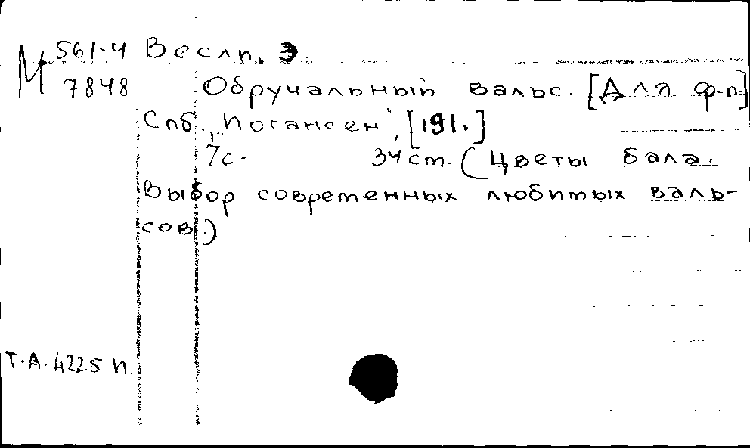 М 561-4 Весли, Э
7848 Обручальный вальс. [Для ф-п.]
Спб., "Иогансен", [191.]
7с. 34 ст. (Цветы бала.
Выбор современных любимых валь-
сов.)
Т.А. 4225 и